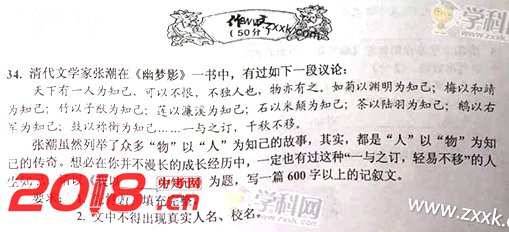 作文
(50分)
34. 清代文学家张潮在《幽梦影》一书中，有过如下一段议论：
天下有一人为知己，可以不恨，不独人也，物亦有之。如菊以渊明为知己；梅以和靖
为知己；竹以子猷为知己；莲以濂溪为知己；石以米颠为知己；茶以陆羽为知己；鹅以右
军为知己；鼓以祢衡为知己……一与之订，千秋不移。
张潮虽然列举了众多“物”以“人”为知己的故事，其实，都是“人”以“物”为知
己的传奇。想必在你并不漫长的成长经历中，一定也有过这种“一与之订，轻易不移”的人
为题，写一篇 600 字以上的记叙文。
填充完整
2. 文中不得出现真实人名、校名。
2018.cn
中考网
学科网
zxxk.com
学科网
www.zxxk.com